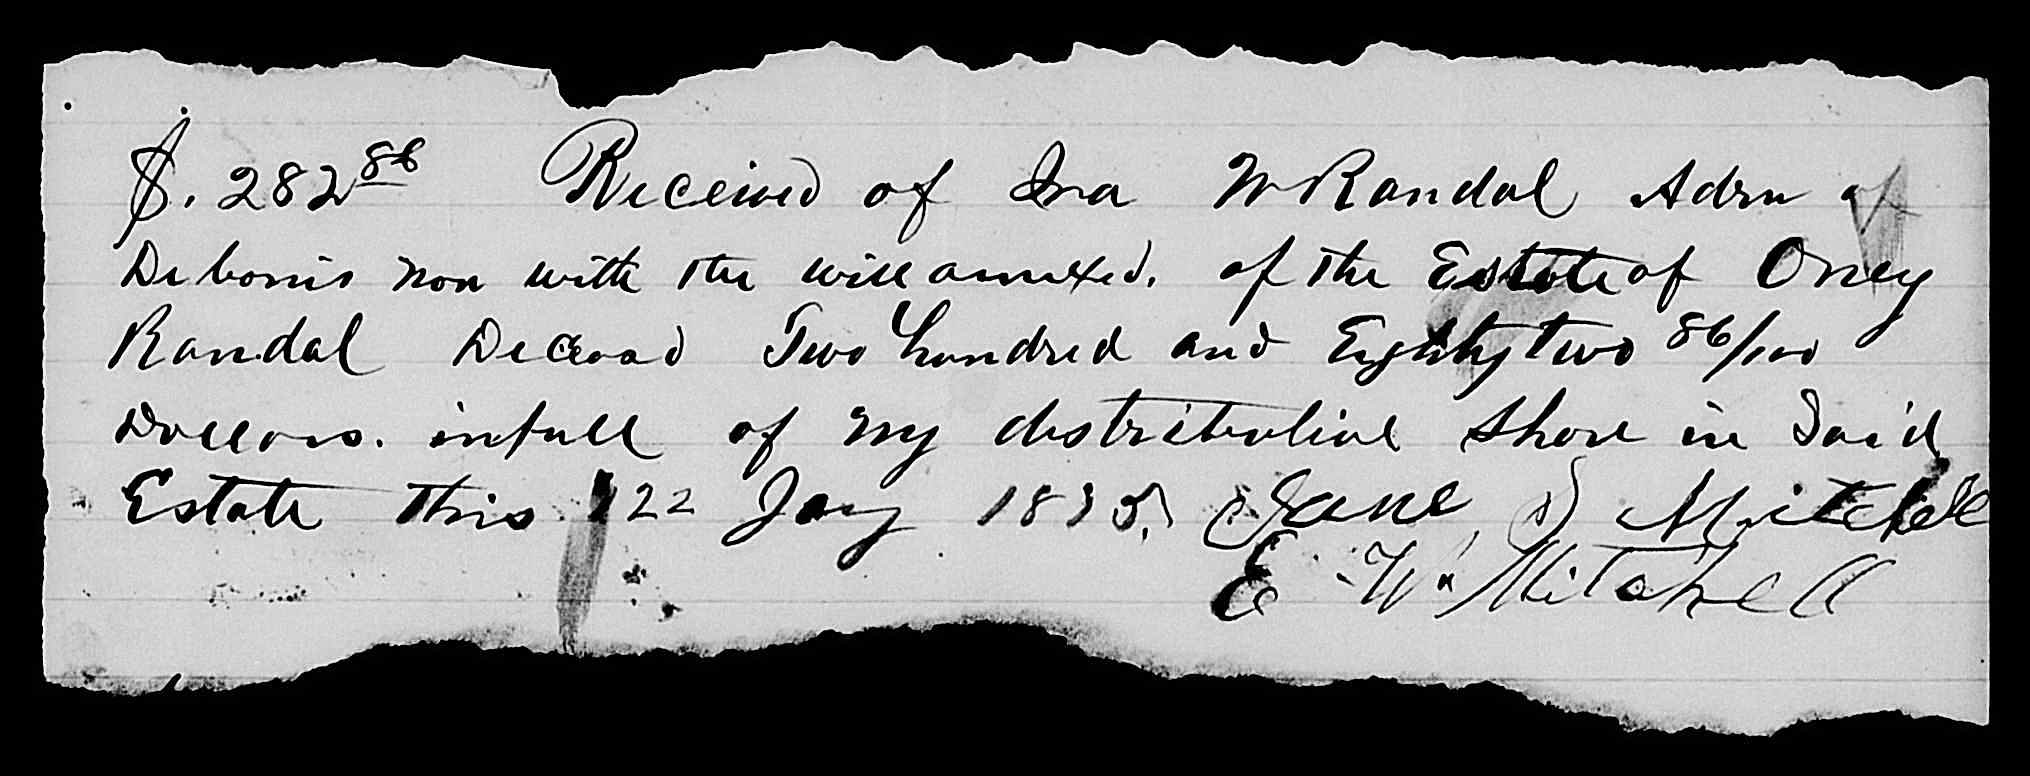 $. 282 86 Received of Ira W Randal Adm of
De bonis non with the will annexed. of the Estate of Oney
Randal Deceasd Two hundred and Eighty two 86/100
Dollars. in full of my distributive Share in Said
Estate this 22 Jany 18 Jane Mitchell
E Wm Mitchell